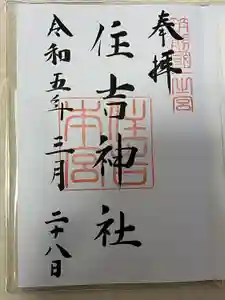 奉拝
住吉神社
令和五年三月二十八日